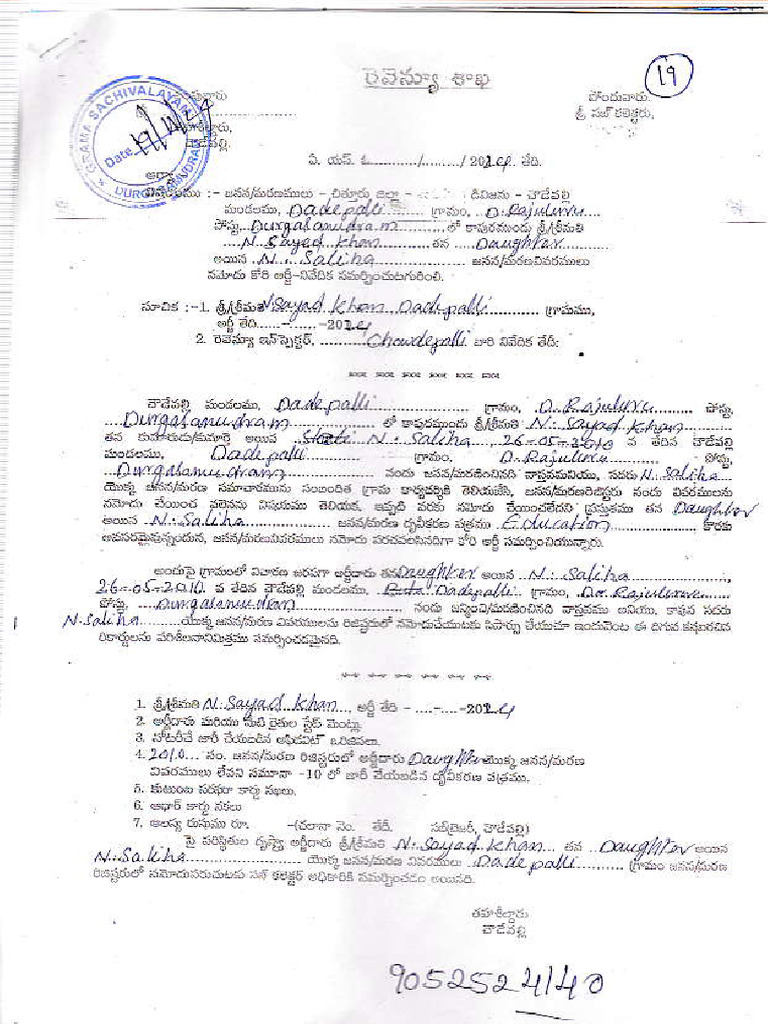 రెవెన్యూ శాఖ
19
GRAMA SACHIVALAYAM
Date
DURGASAMUDRAM
పొందువారు.
శ్రీ సబ్ కలెక్టరు,
తహశీల్దారు,
చౌడేపల్లి.
ఏ. యస్. ఓ............/........./2024 తేది.
విషయము :- జనన/మరణములు - చిత్తూరు జిల్లా - డివిజను - చౌడేపల్లి
మండలము, Dadepalli గ్రామం, D. Rajuluru
పోస్టు, Durgasamudram లో కాపురముండు శ్రీ/శ్రీమతి
N. Sayad Khan తన Daughter
అయిన N. Saliha జనన/మరణవివరములు
నమోదు కోరి అర్జీ-నివేదిక సమర్పించుటగురించి.
సూచిక :-1. శ్రీ/శ్రీమతి N Sayad Khan Dadepalli గ్రామము,
అర్జీ తేది......-......-2024
2. రెవెన్యూ ఇన్‌స్పెక్టర్, Chowdepalli వారి నివేదిక తేదీ:
చౌడేపల్లి మండలము, Dadepalli గ్రామం, D. Rajuluru పోస్టు,
Durgasamudram లో కాపురముండు శ్రీ/శ్రీమతి N. Sayad Khan
తన కుమారుడు/కుమార్తె అయిన N. Saliha, 26-05-2010 వ తేదిన చౌడేపల్లి
మండలము, Dadepalli గ్రామం, D. Rajuluru పోస్టు,
Durgasamudram నందు జనన/మరణించినది వాస్తవమనియు, సదరు N. Saliha
యొక్క జనన/మరణ సమాచారమును సంబంధిత గ్రామ కార్యదర్శికి తెలియజేసి, జనన/మరణరిజిష్టరు నందు వివరములను
నమోదు చేయించ వలెనను విషయము తెలియక, ఇప్పటి వరకు నమోదు చేయించలేదని ప్రస్తుతము తన Daughter
అయిన N. Saliha జనన/మరణ ధృవీకరణ పత్రము Education కొరకు
అవసరమైవున్నందున, జనన/మరణవివరములు నమోదు పరచవలసినదిగా కోరి అర్జీ సమర్పించియున్నారు.
అందుపై గ్రామంలో విచారణ జరపగా అర్జీదారు తన Daughter అయిన N. Saliha,
26-05-2010 వ తేదిన చౌడేపల్లి మండలము, Dadepalli గ్రామం, D. Rajuluru
పోస్టు, Durgasamudram నందు జన్మించి/మరణించినది వాస్తవము అనియు, కావున సదరు
N. Saliha యొక్క జనన/మరణ వివరములను రిజిష్టరులో నమోదుచేయుటకు సిఫార్సు చేయుచూ ఇందువెంట ఈ దిగువ కనబరచిన
రికార్డులను పరిశీలనానిమిత్తము సమర్పించడమైనది.
1. శ్రీ/శ్రీమతి N. Sayad Khan, అర్జీ తేది - ....-....-2024
2. అర్జీదారు మరియు సాటి రైతుల స్టేట్ మెంట్లు.
3. నోటరీచే జారీ చేయబడిన అఫిడవిట్ ఒరిజినలు.
4. 2010 సం. జనన/మరణ రిజిష్టరులో అర్జీదారు Daughter యొక్క జనన/మరణ
వివరములు లేవని నమూనా -10 లో జారీ చేయబడిన ధృవీకరణ పత్రము.
5. కుటుంబ సరఫరా కార్డు నఖలు.
6. ఆధార్ కార్డు నకలు
7. ఆలస్య రుసుము రూ. -(చలానా నెం. తేదీ. సబ్‌ట్రెజరీ, చౌడేపల్లి)
పై పరిస్థితుల దృష్ట్యా అర్జీదారు శ్రీ/శ్రీమతి N. Sayad Khan తన Daughter అయిన
N. Saliha యొక్క జనన/మరణ వివరములు Dadepalli గ్రామం జనన/మరణ
రిజిష్టరులో నమోదుపరుచుటకు సబ్ కలెక్టర్ అధికారికి సమర్పించడం అయినది.
తహశీల్దారు
చౌడేపల్లి
9052524140